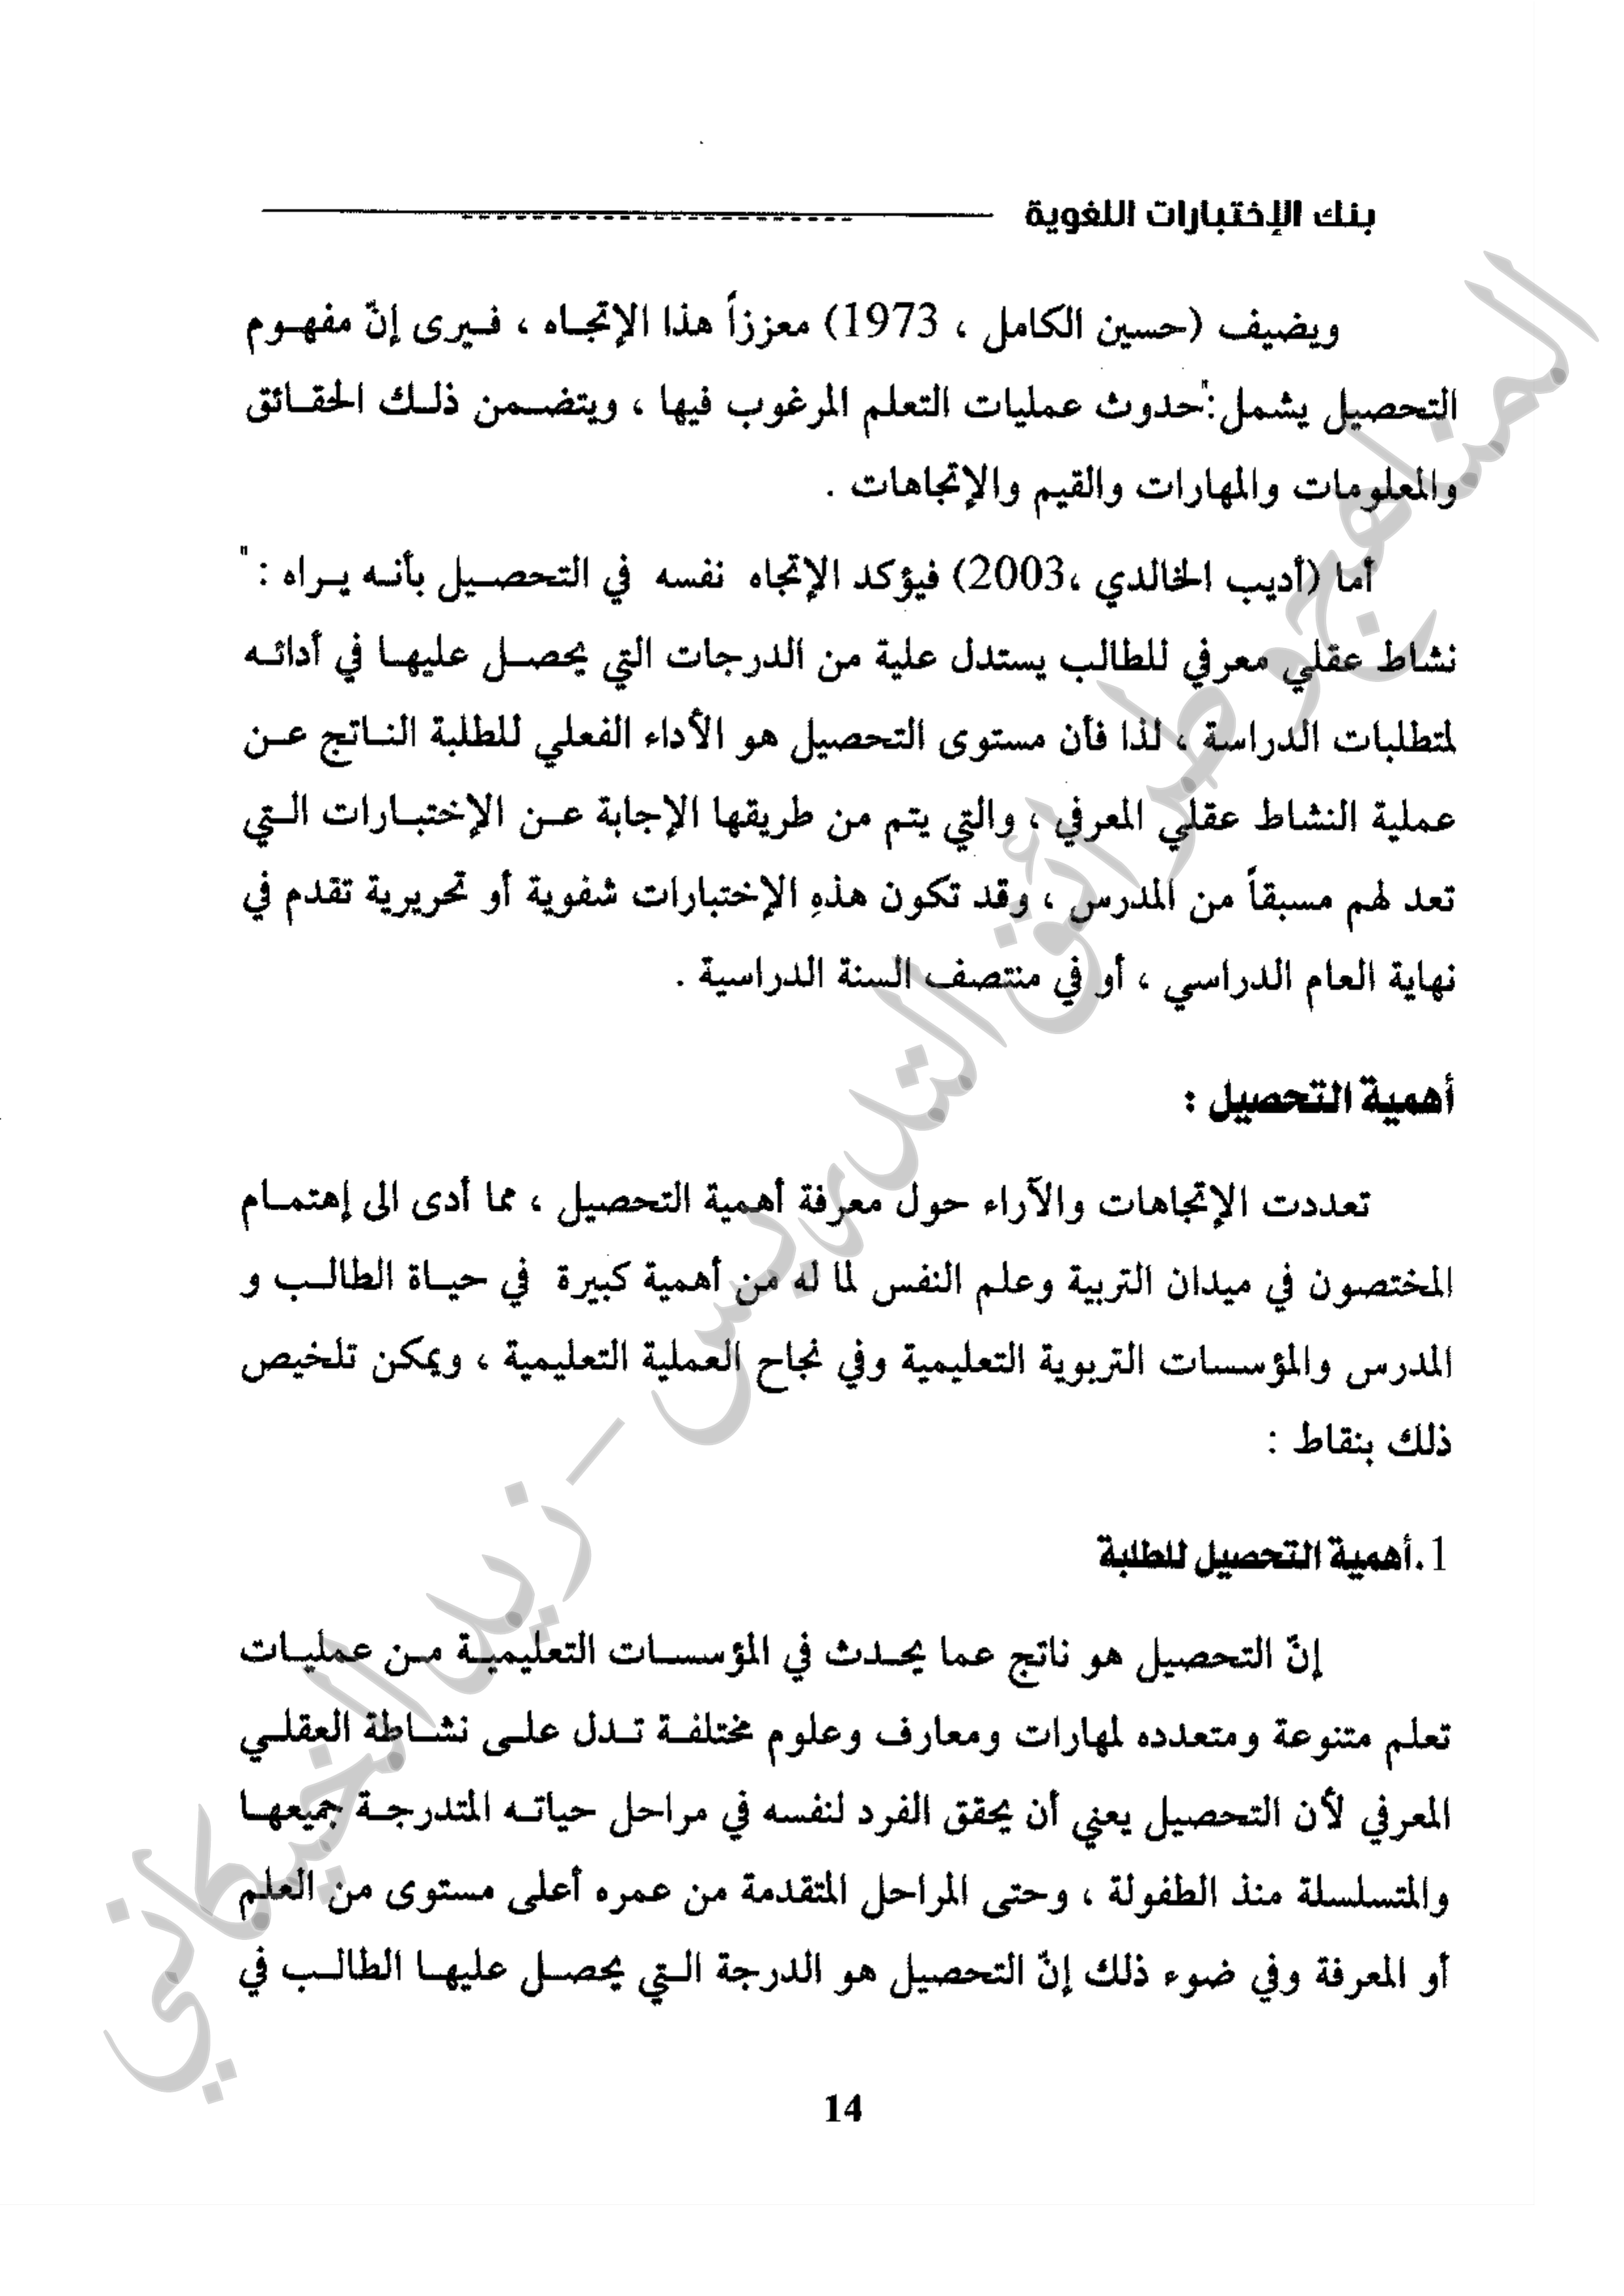 بنك الإختبارات اللغوية
ويضيف (حسين الكامل ، 1973) معززاً هذا الإتجاه ، فيرى إنّ مفهوم
التحصيل يشمل :"حدوث عمليات التعلم المرغوب فيها ، ويتضمن ذلك الحقائق
والمعلومات والمهارات والقيم والإتجاهات .
أما (أديب الخالدي ،2003) فيؤكد الإتجاه نفسه في التحصيل بأنه يراه : "
نشاط عقلي معرفي للطالب يستدل علية من الدرجات التي يحصل عليها في أدائه
لمتطلبات الدراسة ، لذا فأن مستوى التحصيل هو الأداء الفعلي للطلبة الناتج عن
عملية النشاط عقلي المعرفي ، والتي يتم من طريقها الإجابة عن الإختبارات التي
تعد لهم مسبقاً من المدرس ، وقد تكون هذهِ الإختبارات شفوية أو تحريرية تقدم في
نهاية العام الدراسي ، أو في منتصف السنة الدراسية .
أهمية التحصيل :
تعددت الإتجاهات والآراء حول معرفة أهمية التحصيل ، مما أدى الى إهتمام
المختصون في ميدان التربية وعلم النفس لما له من أهمية كبيرة في حياة الطالب و
المدرس والمؤسسات التربوية التعليمية وفي نجاح العملية التعليمية ، ويمكن تلخيص
ذلك بنقاط :
1.أهمية التحصيل للطلبة
إنّ التحصيل هو ناتج عما يحدث في المؤسسات التعليمية من عمليات
تعلم متنوعة ومتعدده لمهارات ومعارف وعلوم مختلفة تدل على نشاطة العقلي
المعرفي لأن التحصيل يعني أن يحقق الفرد لنفسه في مراحل حياته المتدرجة جميعها
والمتسلسلة منذ الطفولة ، وحتى المراحل المتقدمة من عمره أعلى مستوى من العلم
أو المعرفة وفي ضوء ذلك إنّ التحصيل هو الدرجة التي يحصل عليها الطالب في
14
المناهج وطرائق التدريس - زيد الخيكاني